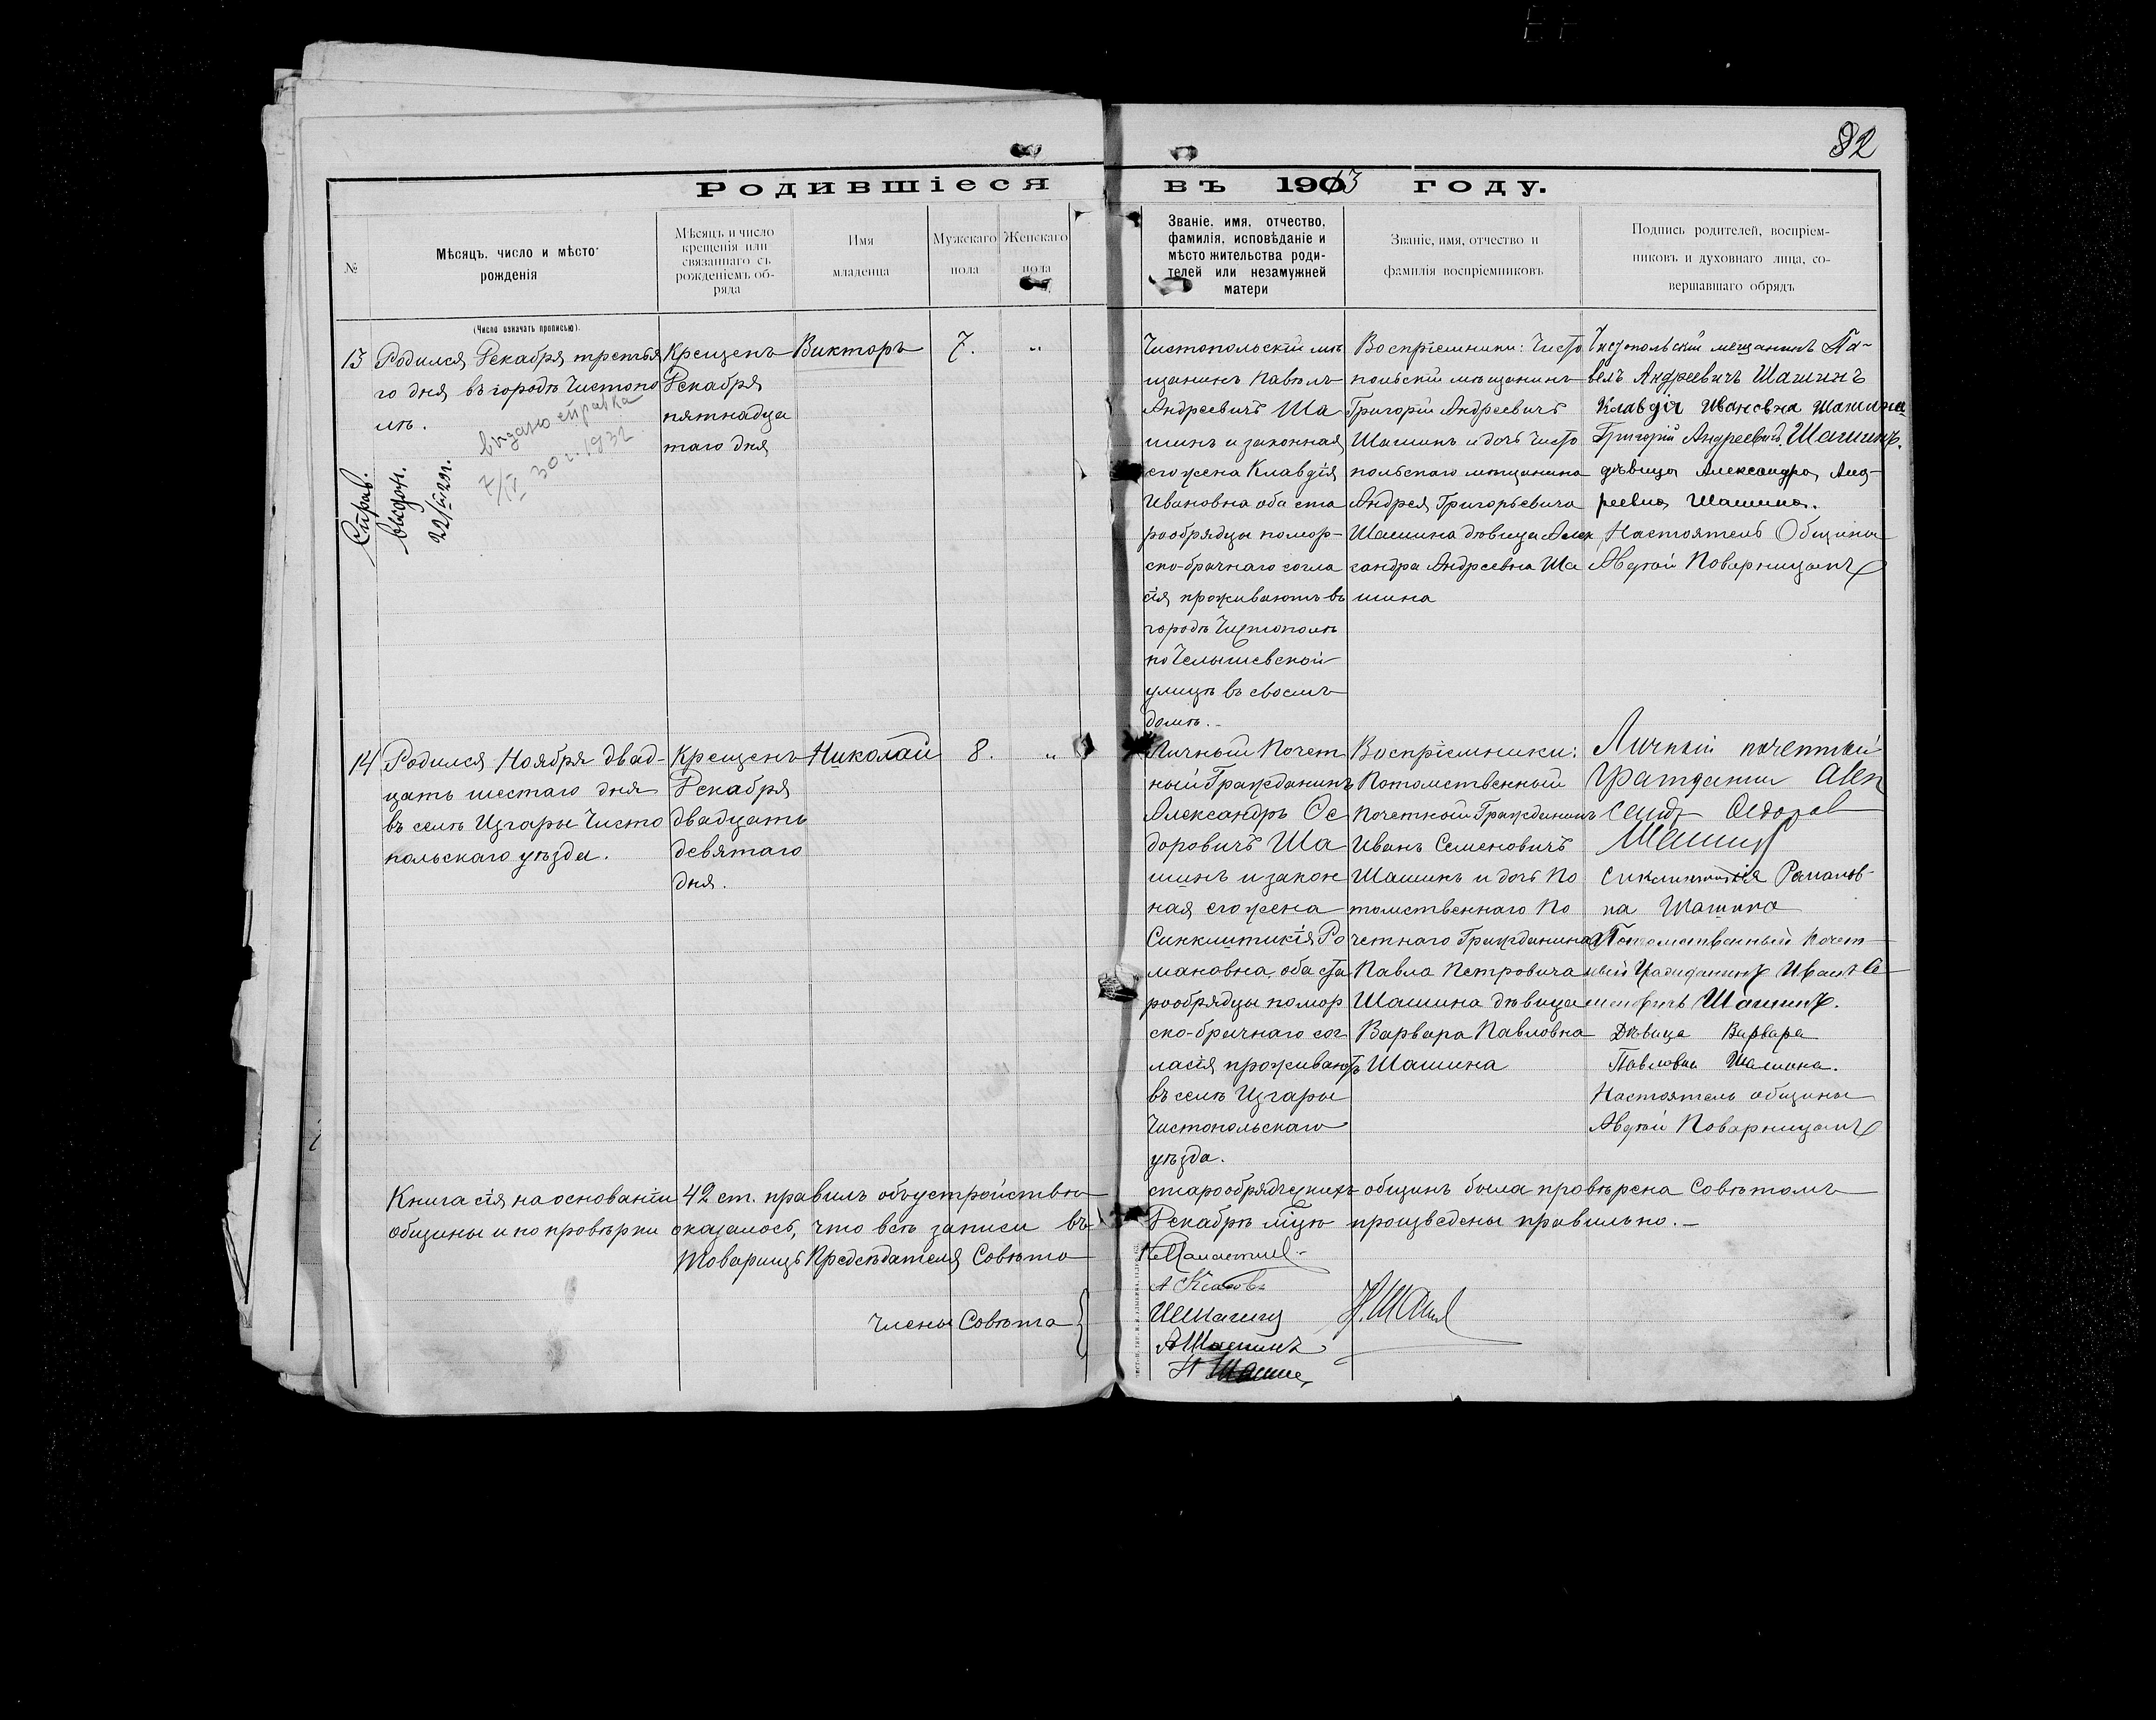 82
Родившіеся въ 1913 году.
№
Мѣсяцъ, число и мѣсто
рожденія
Мѣсяцъ и число
крещенія или
связаннаго съ
рожденіемъ об-
ряда
Имя
младенца
Мужскаго
пола
Женскаго
пола
Званіе, имя, отчество,
фамилія, исповѣданіе и
мѣсто жительства роди-
телей или незамужней
матери
Званіе, имя, отчество и
фамилія воспріемниковъ
Подпись родителей, воспріем-
никовъ и духовнаго лица, со-
вершавшаго обрядъ
(Число означать прописью).
13
Родился Декабря третья
го дня въ городѣ Чистопо
лѣ.
выдано справка
Справ.
выдан.
Крещенъ
Декабря
пятнадца
таго дня
Викторъ
7.
"
Чистопольскій мѣ
щанинъ Павелъ
Андреевичъ Ша
шинъ и законная
его жена Клавдія
Ивановна оба ста
рообрядцы помор-
ско-брачнаго согла
сія проживаютъ въ
городѣ Чистополѣ
по Челышевской
улицѣ въ своемъ
домѣ.
Воспріемники: Чисто
польскій мѣщанинъ
Григорій Андреевичъ
Шашинъ и дочь Чисто
польскаго мѣщанина
Андрея Григорьевича
Шашина дѣвица Алек
сандра Андреевна Ша
шина
Чистопольскій мещанинъ Па-
велъ Андреевичъ Шашинъ
Клавдія Ивановна Шашина
Григорій Андреевичъ Шашинъ.
дѣвица Александра Анд-
реевна Шашина.
Настоятель Общины
Авдѣй Поварницынъ
14
Родился Ноября двад-
цать шестаго дня
въ селѣ Изгары Чисто
польскаго уѣзда.
Крещенъ
Декабря
двадцать
девятаго
дня.
Николай
8.
"
Личный Почет
ный Гражданинъ
Александръ Ѳе
доровичъ Ша
шинъ и закон
ная его жена
Синклитикія Ро
мановна, оба ста
рообрядцы помор
ско-брачнаго сог
ласія проживаютъ
въ селѣ Изгары
Чистопольскаго
уѣзда.
Воспріемники:
Потомственный
Почетный Гражданинъ
Иванъ Семеновичъ
Шашинъ и дочь По
томственнаго По
четнаго Гражданина
Павла Петровича
Шашина дѣвица
Варвара Павловна
Шашина
Личный почетный
Гражданин Алек
Шашин
Романов-
на Шашина
Потомственный почет
ный Гражданинъ Иванъ Се
меновичъ Шашинъ.
Дѣвица Варвара
Павловна Шашина.
Настоятель общины
Авдѣй Поварницынъ
Книга сія на основаніи 42 ст. правилъ объ устройствѣ старообрядческихъ общинъ была провѣрена Совѣтомъ
общины и по провѣрки оказалось, что всѣ записи въ Декабрѣ мѣцѣ произведены правильно.
Товарищъ Предсѣдателя Совѣта
Члены Совѣта
АШашинъ
Н Шашин